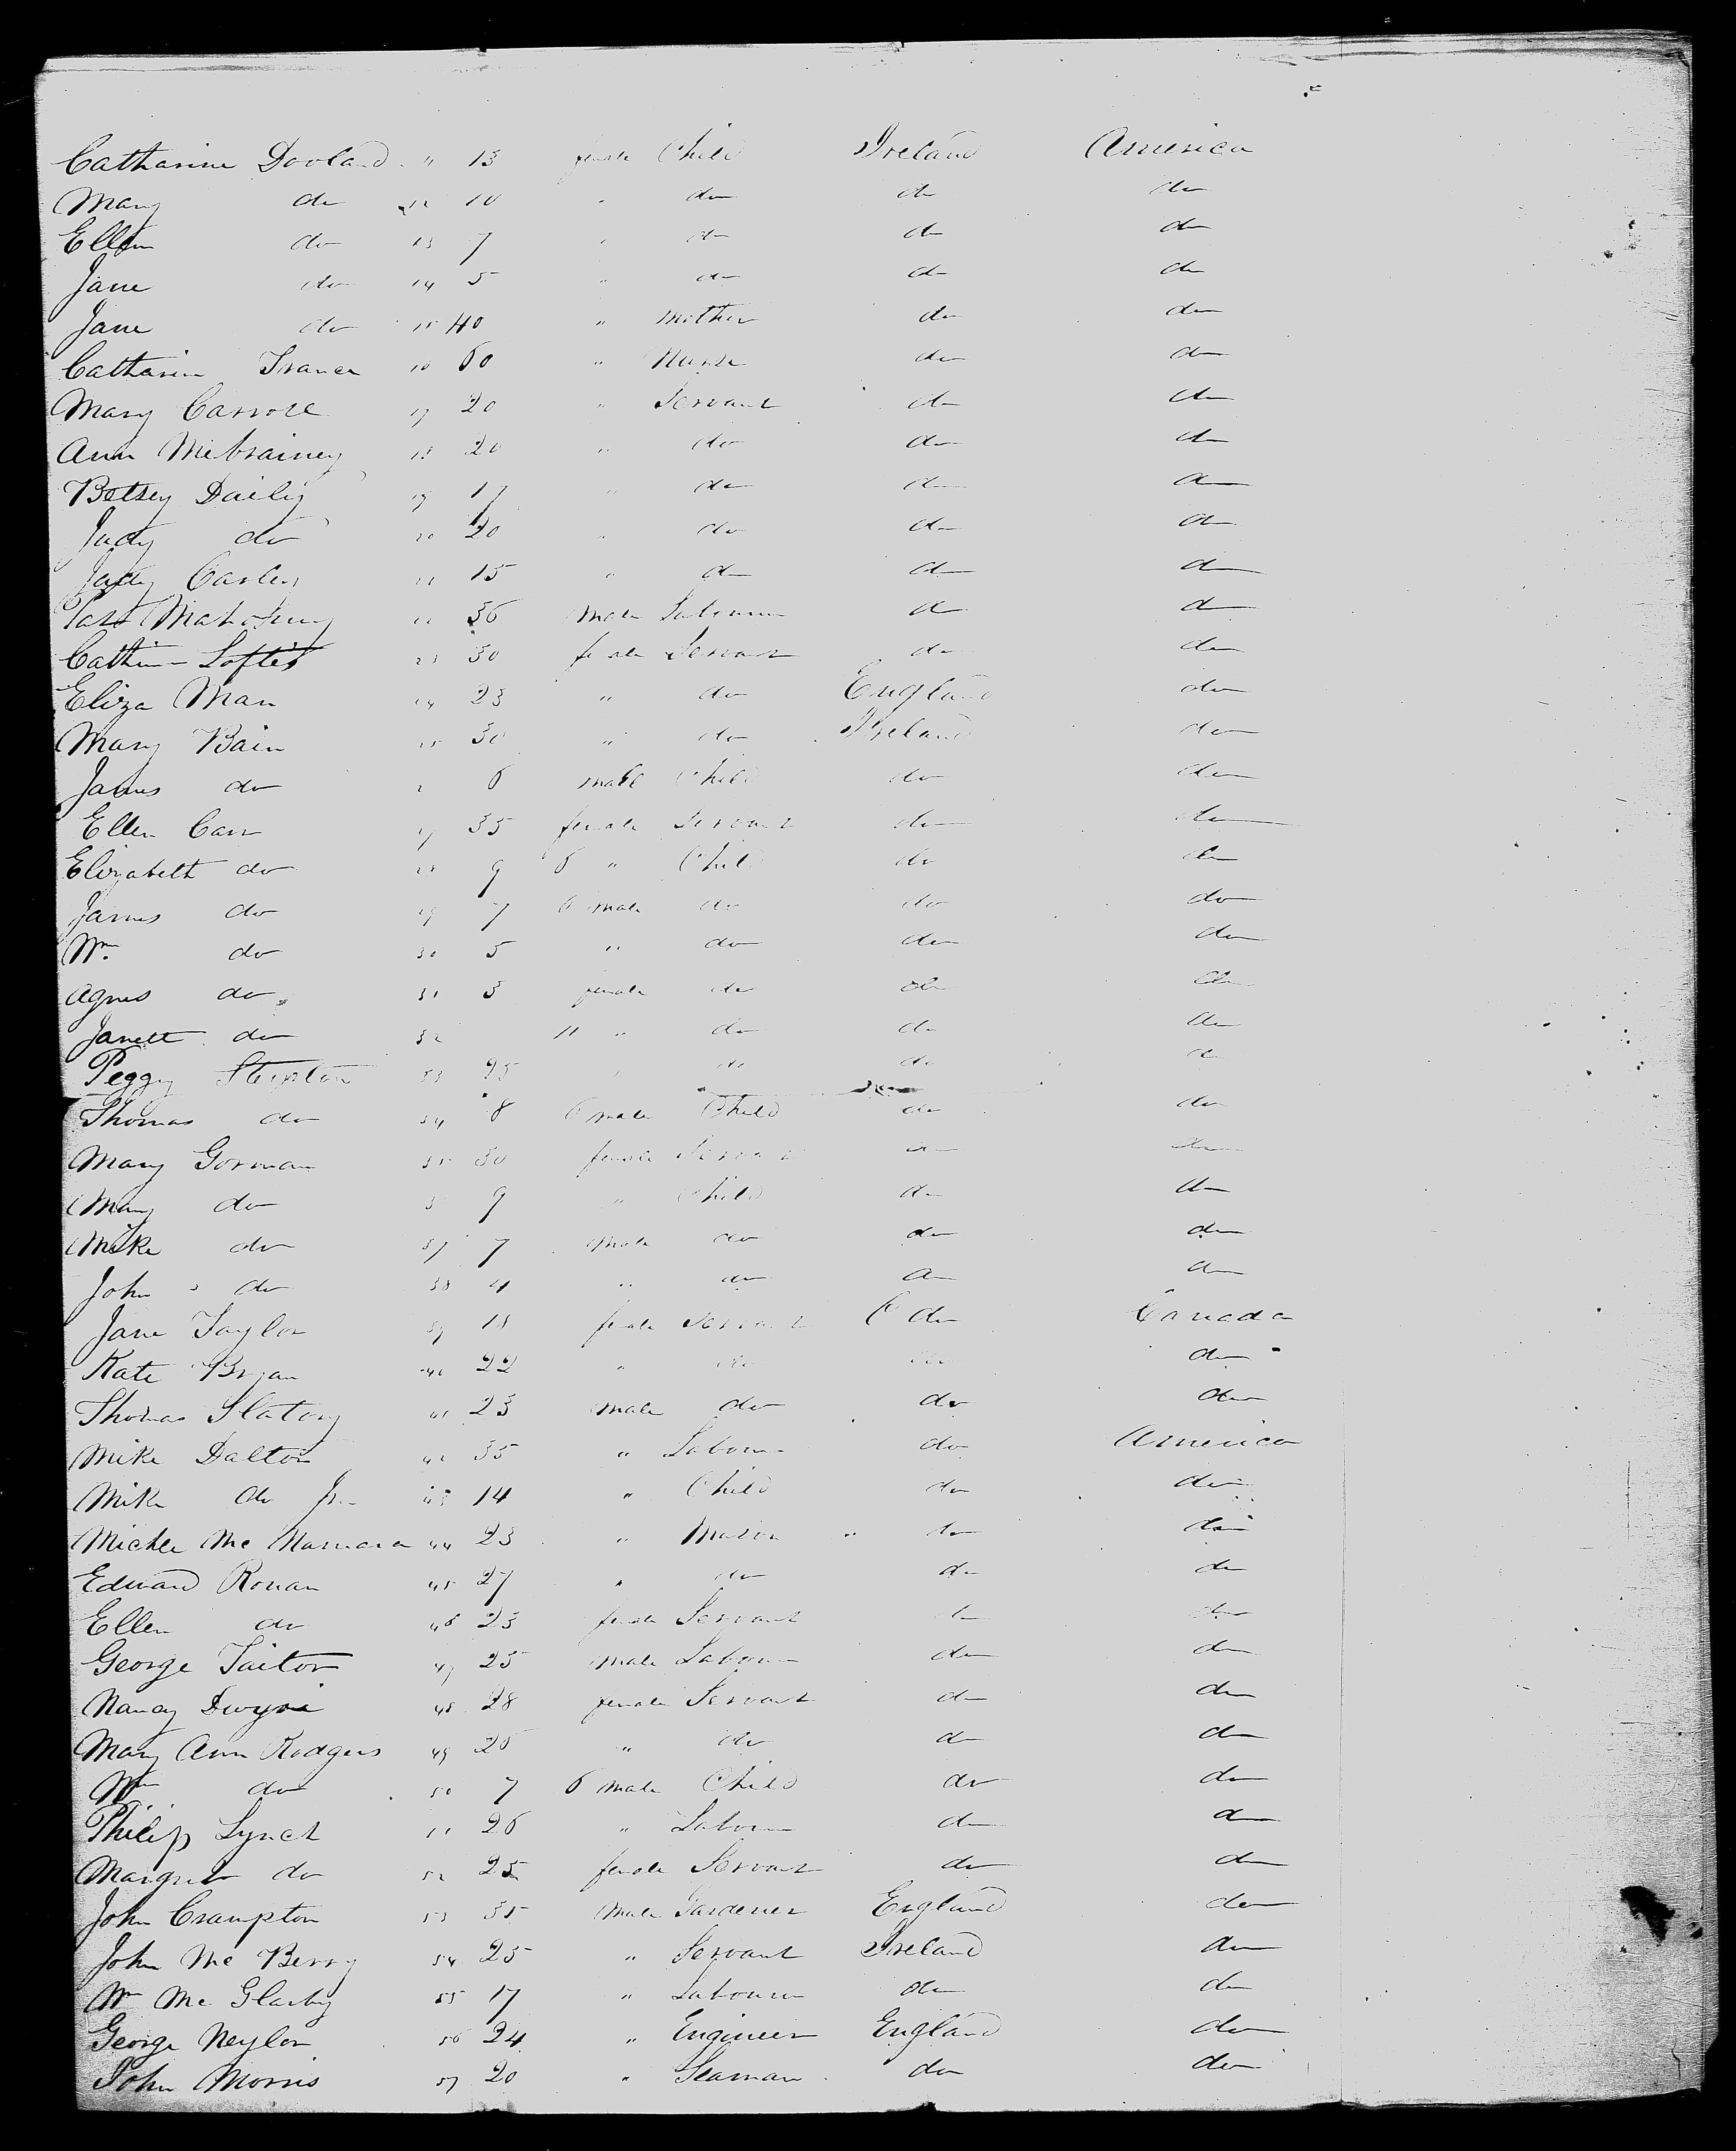 Catharine Dooland " 13 female Child Ireland America
Mary do 12 10 " do do do
Ellen do 13 7 " do do do
Jane do 14 5 " do do do
Jane do 15 40 " Mother do do
Catharin France 16 60 " Nurse do do
Mary Carroll 17 20 " Servant do do
Ann 18 20 " do do do
Betsey Daily 19 17 " do do do
Judy do 20 20 " do do do
Judy Carley 21 15 " do do do
Mahoney 22 36 male Labourer do do
Loftis 23 30 female Servant do do
Eliza Man 24 23 " do England do
Mary Bain 25 30 " do Ireland do
James do 2 6 male Child do do
Ellen Carr 27 35 female Servant do do
Elizabeth do 28 9 6 " Child do do
James do 29 7 6 male do do do
Wm. do 30 5 " do do do
Agnes do 31 3 female do do do
Janett do 32 11 " do do do
Peggy 33 25 " do do do
Thomas do 34 8 6 male Child do do
Mary Gorman 35 30 female Servant do do
Mary do 3 9 " Child do do
Mike do 37 7 male do do do
John do 38 4 " do do do
Jane Taylor 39 18 female Servant do Canada
Kate Bryan 40 22 " do do do
Thomas Slatory 41 23 male do do do
Mike Dalton 42 35 " Labour do America
Mike do Jr. 43 14 " Child do do
Michle Mc Namara 44 23 " Mason " do do
Edward Ronan 45 27 " do do do
Ellen do 46 23 female Servant do do
George Taitor 47 25 male Labour do do
Nancy Dwyre 48 28 female Servant do do
Mary Ann Rodgers 49 25 " do do do
Wm do 50 7 6 male Child do do
Philip Lynch 51 26 " Labour do do
Margret do 52 25 female Servant do do
John Crampton 53 35 male Gardener England do
John Mc Berry 54 25 " Servant Ireland do
Wm Mc Glarky 55 17 " Labourer do do
George Neylon 56 24 " Engineer England do
John Morris 57 20 " Seaman do do